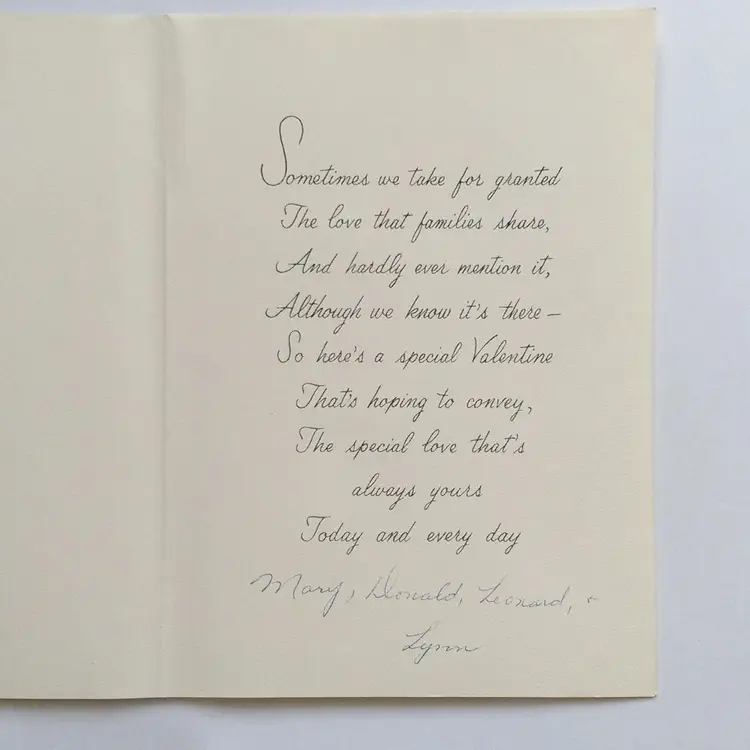 Sometimes we take for granted
The love that families share,
And hardly ever mention it,
Although we know it's there —
So here's a special Valentine
That's hoping to convey,
The special love that's
always yours
Today and every day
Mary, Donald, Leonard, +
Lynn